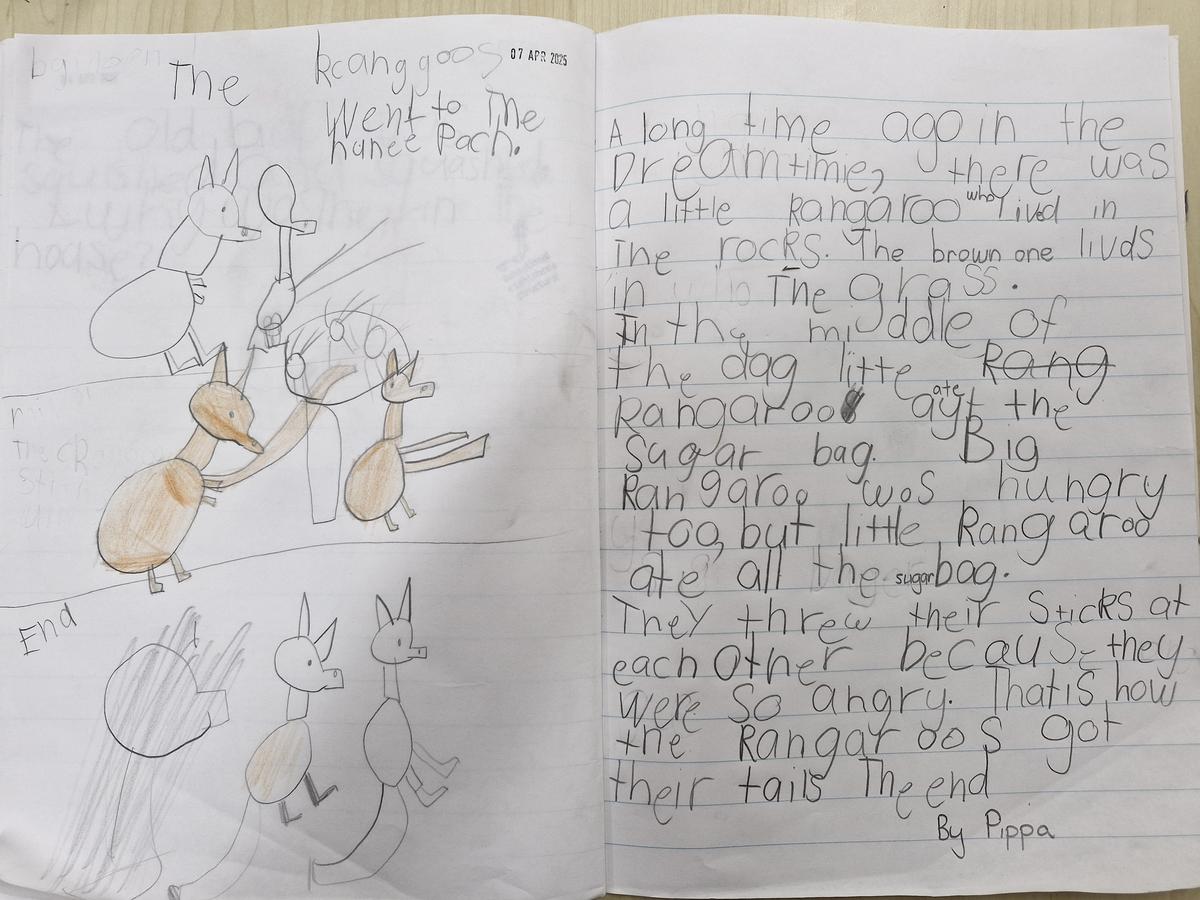 The kcanggoos
07 APR 2025
Went to The
hanee Pach.
End
A long time agoin the
DreAmtime, there was
a little Rangaroo who lived in
The rocks. The brown one livds
in The grass.
In the middle of
the dag litte Rang
Rangaroo ate ayt the
Sugar bag. Big
Rangaroo was hungry
too, but little Rangaroo
ate all the sugar bag.
They threw their Sticks at
each Other because they
were So angry. That is how
the Rangaroos got
their tails The end
By Pippa